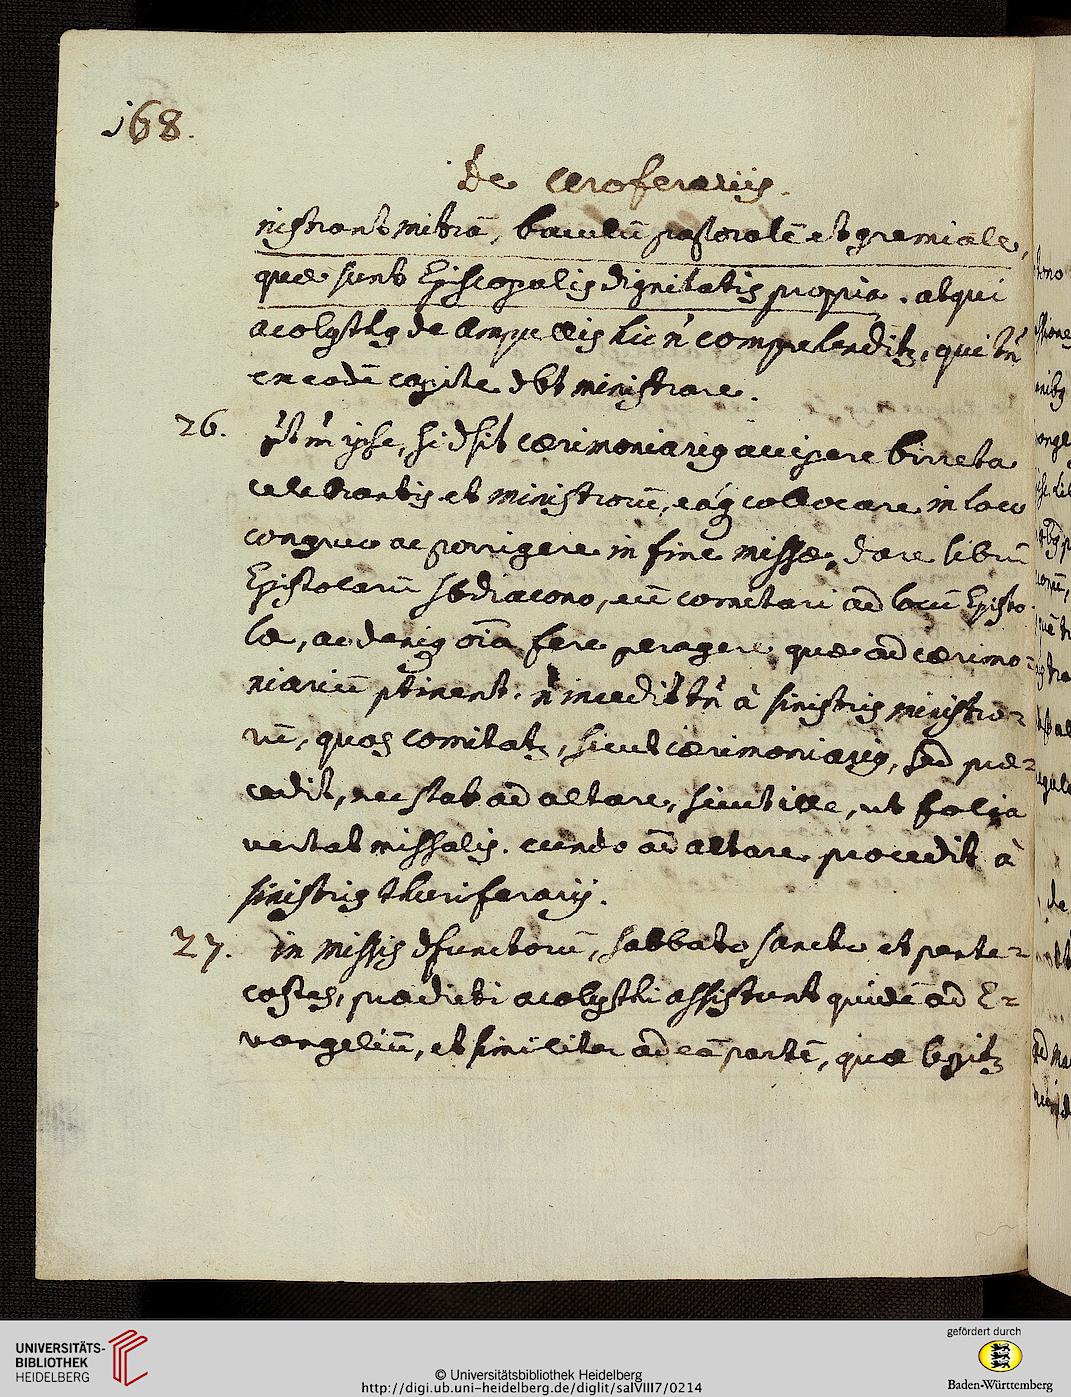 168.
De Ceroferariis.
nistrant mitrā, baculū pastoralē et gremiale,
quæ sunt Episcopalis dignitatis propria. atqui
acolythg de Ampullis hic n̄ comprehenditr, qui tn̄
en eodē capite dbt ministrare.
26. Pt m̄ ipse, si dsit cærimoniarig accipere birreta
celebrantis et ministrorū, eáq collocare in loco
congruo ac porrigere in fine missæ, dare librū
Epistolarū sbdiacono, eū comitari ad locū Episto-
læ, ac deniq oīa fere peragere quæ ad cærimo-
niariū ptinent. n̄ incedit tn̄ à sinistris ministro-
rū, quos comitatr, sicut cærimoniarig, sed præ-
cedit, nec stat ad altare, sicut ille, ut folia
vertat missalis. eundo ad altare procedit à
sinistris thuriferarij.
27. in missis dfunctorū, sabbato sancto et pente-
costes, prædicti acolythi assistunt quidē ad E-
vangeliū, et similiter ad eā partē, quæ legitr
UNIVERSITÄTS-
BIBLIOTHEK
HEIDELBERG
© Universitätsbibliothek Heidelberg
http://digi.ub.uni-heidelberg.de/diglit/salVIII7/0214
gefördert durch
Baden-Württemberg